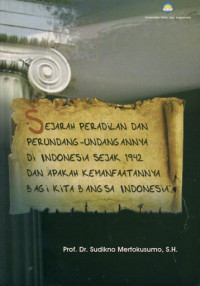 "SEJARAH PERADILAN DAN
PERUNDANG-UNDANGANNYA
DI INDONESIA SEJAK 1942
DAN APAKAH KEMANFAATANNYA
BAGI KITA BANGSA INDONESIA"
Prof. Dr. Sudikno Mertokusumo, S.H.